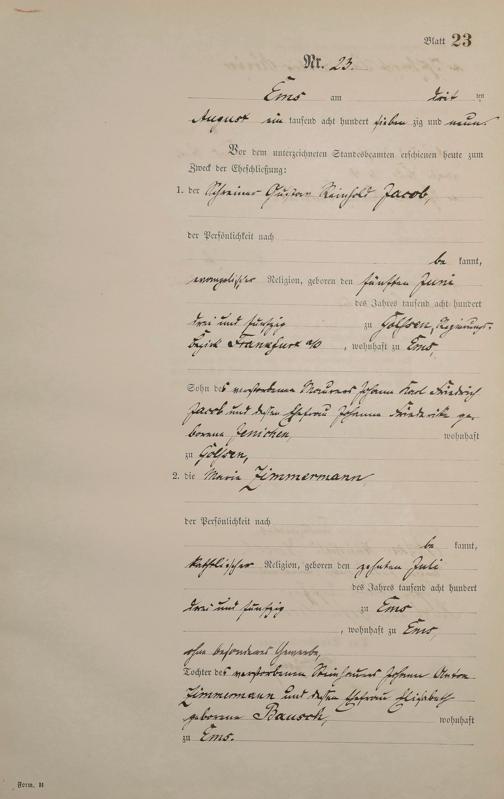 Blatt 23
Nr. 23.
Ems am drit ten
August ein tausend acht hundert sieben zig und neun.
Vor dem unterzeichneten Standesbeamten erschienen heute zum
Zweck der Eheschließung:
1. der Schreiner Gustav Reinhold Jacob,
der Persönlichkeit nach
be kannt,
evangelischer Religion, geboren den fünften Juni
des Jahres tausend acht hundert
drei und fünfzig zu Golssen, Regierungs-
Bezirk Frankfurt a/O, wohnhaft zu Ems,
Sohn des verstorbenen Maurers Johann Karl Friedrich
Jacob und dessen Ehefrau Johanna Friederike ge-
borene Jenichen, wohnhaft
zu Golssen,
2. die Maria Zimmermann
der Persönlichkeit nach
be kannt,
katholischer Religion, geboren den zehnten Juli
des Jahres tausend acht hundert
drei und fünfzig zu Ems
, wohnhaft zu Ems,
ohne besonderes Gewerbe,
Tochter des verstorbenen Steinhauers Johann Anton
Zimmermann und dessen Ehefrau Elisabeth
geborene Bausch, wohnhaft
zu Ems.
Form. B